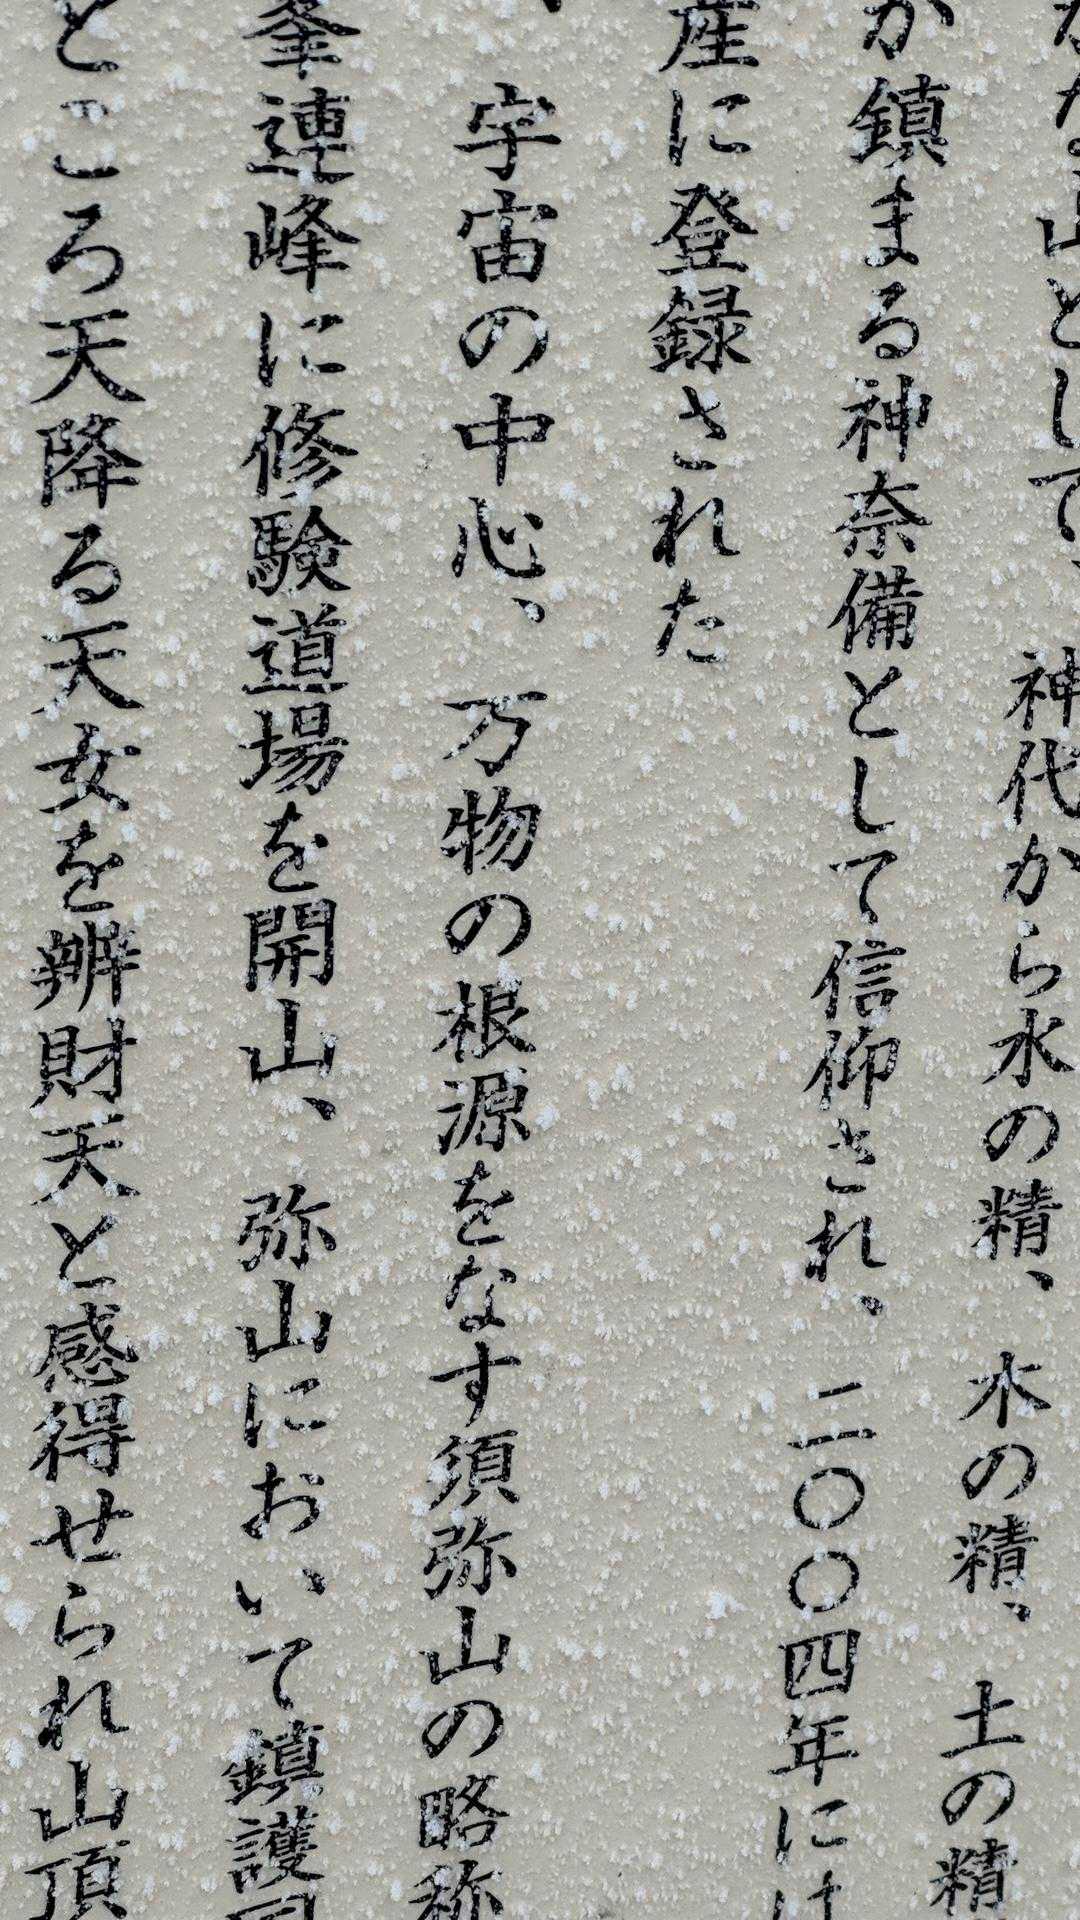 かな山として、神代から水の精、木の精、土の精
が鎮まる神奈備として信仰され、二〇〇四年には
産に登録された
宇宙の中心、万物の根源をなす須弥山の略称
峯連峰に修験道場を開山、弥山において鎮護国
ところ天降る天女を辨財天と感得せられ山頂